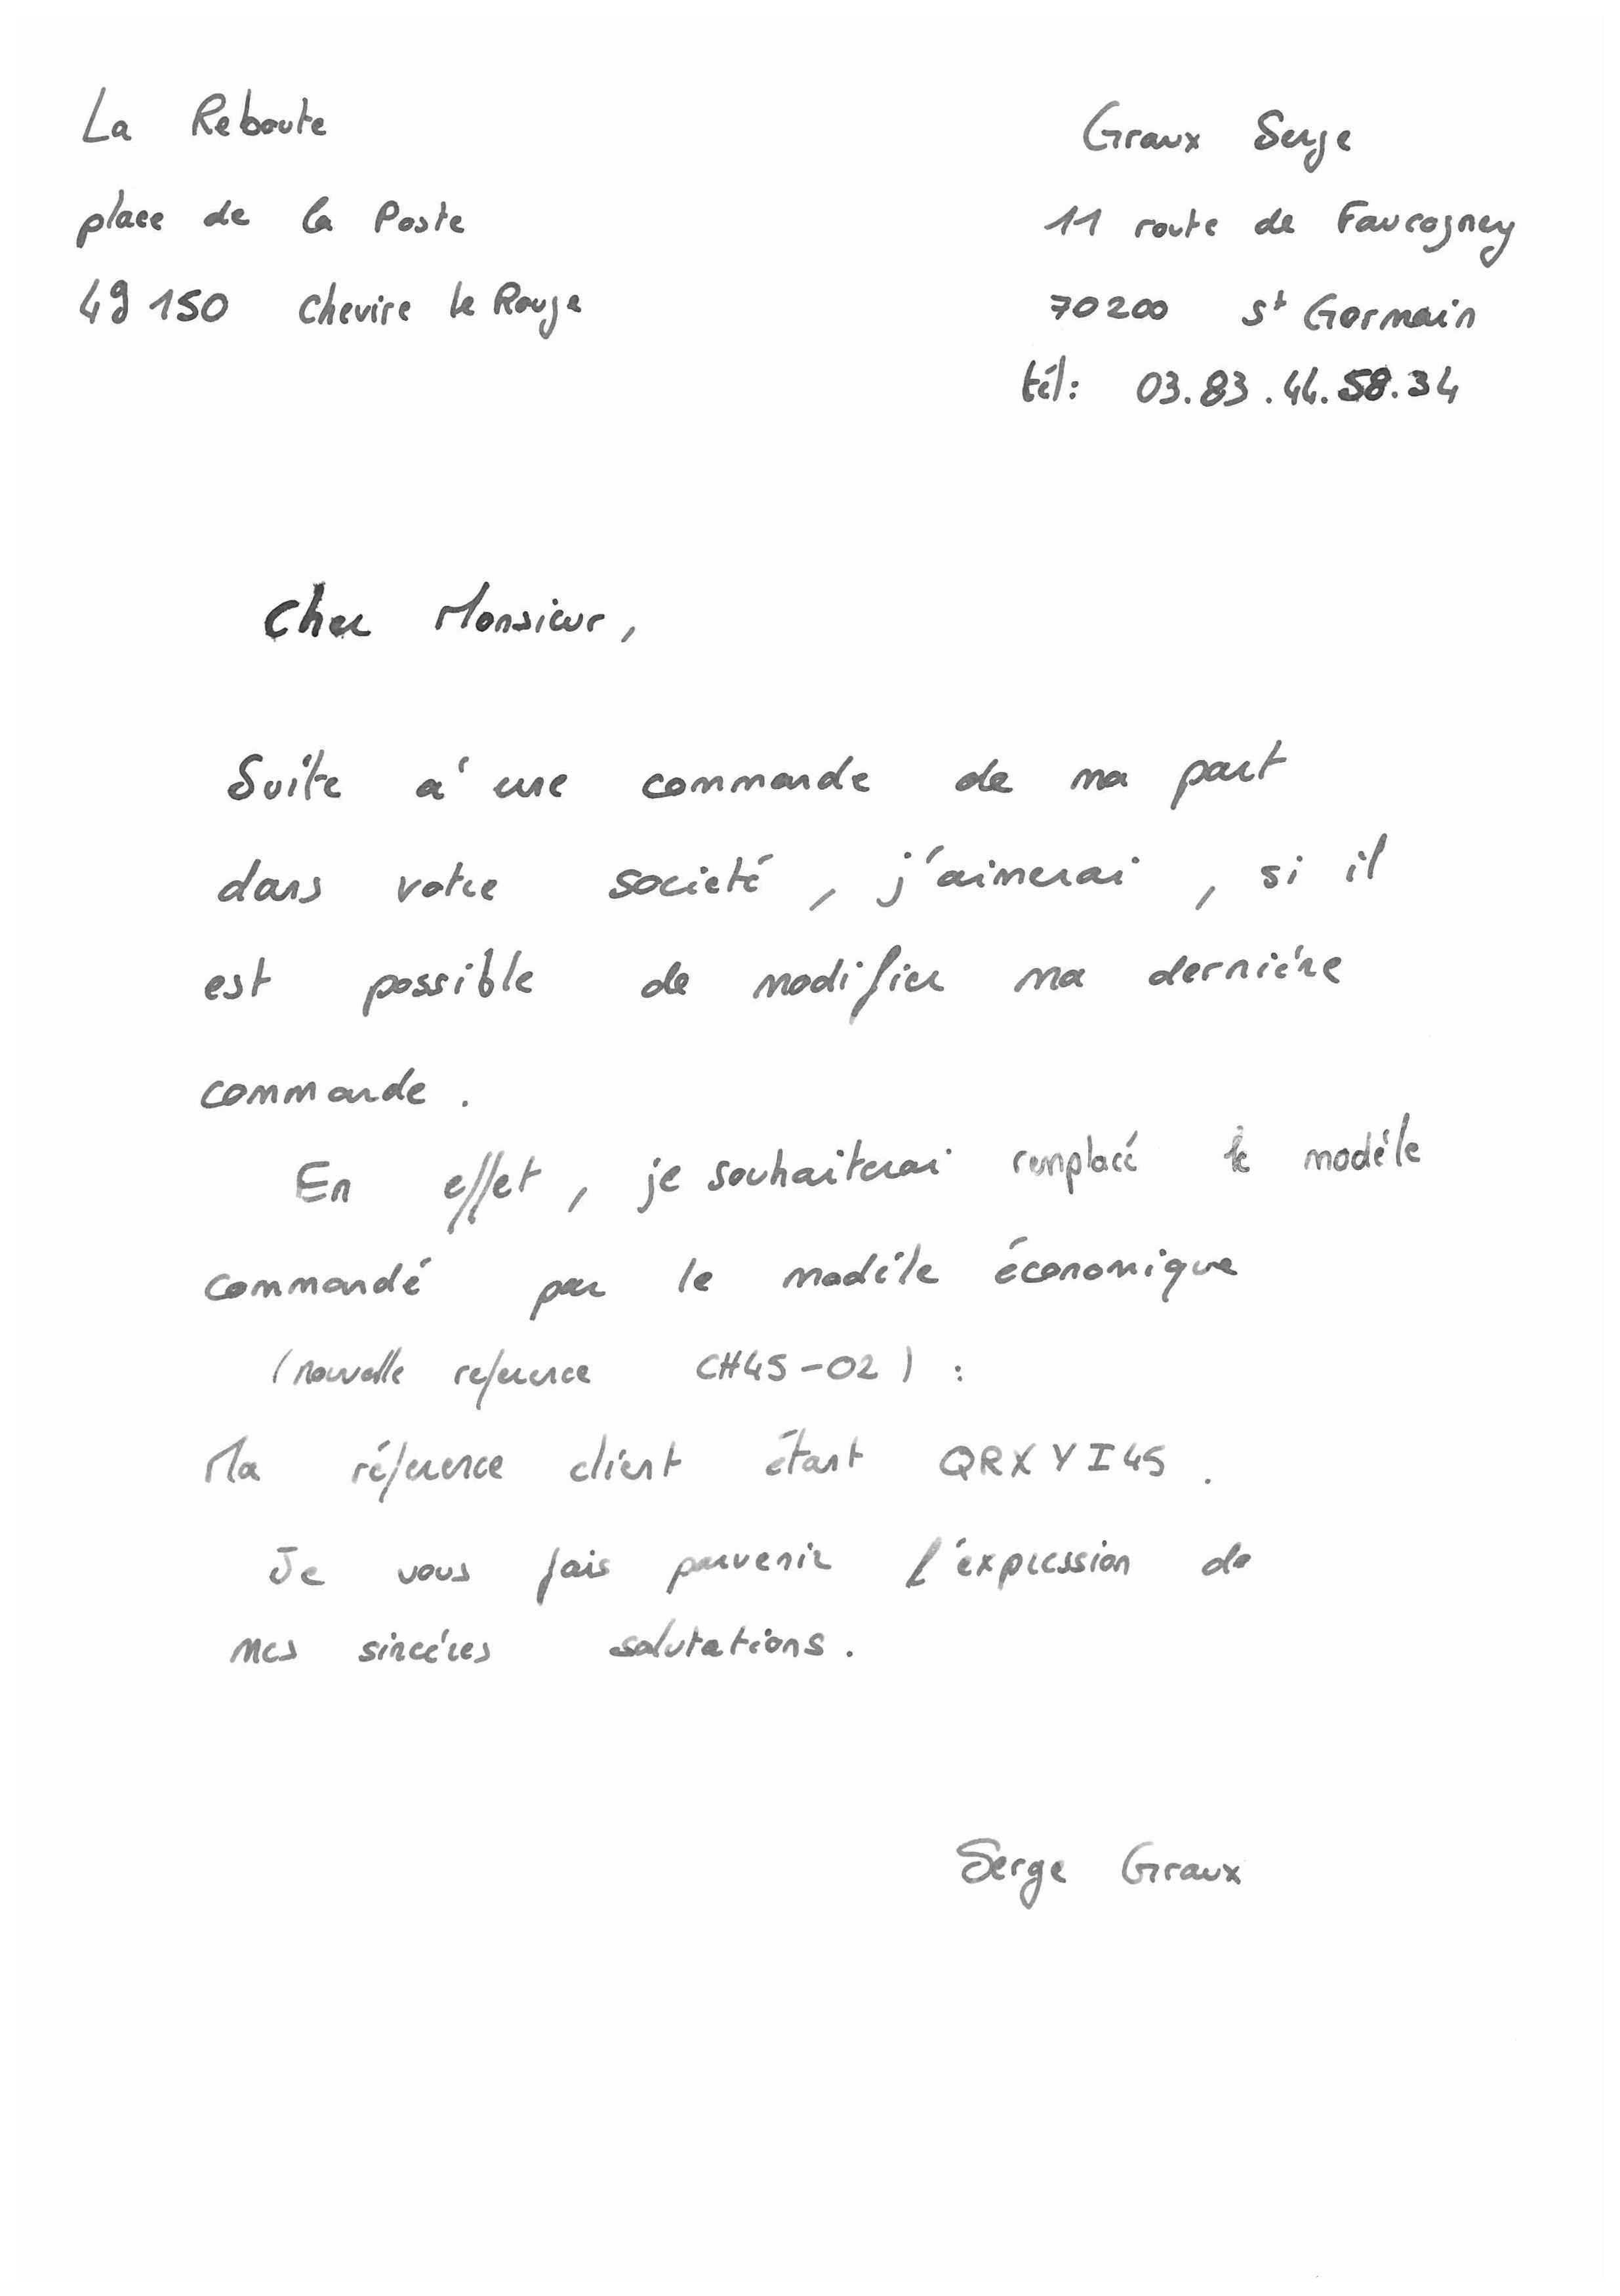 La Reboute
place de la Poste
49150 Chevire le Rouge
Graux Serge
11 route de Faucogney
70200 St Germain
tél: 03.83.44.58.34
Cher Monsieur,
Suite a' une commande de ma part
dans votre societé, j'aimerai, si il
est possible de modifier ma derniére
commande.
En effet, je souhaiterai remplacé le modéle
commandé par le modéle économique
(nouvelle reference CH45-02):
Ma réference client étant QRXYI45.
Je vous fais parvenir l'expression de
mes sincéres salutations.
Serge Graux